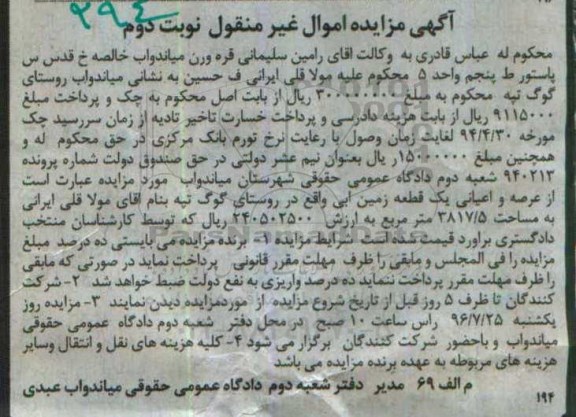 ۲۹۴
آگهی مزایده اموال غیر منقول نوبت دوم
محکوم له عباس قادری به وکالت اقای رامین سلیمانی قره ورن میاندواب خالصه خ قدس س
پاستور ط پنجم واحد ۵ محکوم علیه مولا قلی ایرانی ف حسین به نشانی میاندواب روستای
گوگ تپه محکوم به مبلغ ریال از بابت اصل محکوم به چک و پرداخت مبلغ
۹۱۱۵۰۰۰ ریال از بابت هزینه دادرسی و پرداخت خسارت تاخیر تادیه از زمان سررسید چک
مورخه ۹۴/۴/۳۰ لغایت زمان وصول با رعایت نرخ تورم بانک مرکزی در حق محکوم له و
همچنین مبلغ ۱۵۰۰۰۰۰۰ر یال بعنوان نیم عشر دولتی در حق صندوق دولت شماره پرونده
۹۴۰۲۱۳ شعبه دوم دادگاه عمومی حقوقی شهرستان میاندواب مورد مزایده عبارت است
از عرصه و اعیانی یک قطعه زمین ابی واقع در روستای گوگ تپه بنام اقای مولا قلی ایرانی
به مساحت ۳۸۱۷/۵ متر مربع به ارزش ۲۴۰۵۰۲۵۰۰ ریال که توسط کارشناسان منتخب
دادگستری براورد قیمت شده است شرایط مزایده ۱- برنده مزایده می بایستی ده درصد مبلغ
مزایده را فی المجلس و مابقی را ظرف مهلت مقرر قانونی پرداخت نماید در صورتی که مابقی
را ظرف مهلت مقرر پرداخت ننماید ده درصد واریزی به نفع دولت ضبط خواهد شد ۲- شرکت
کنندگان تا ظرف ۵ روز قبل از تاریخ شروع مزایده از موردمزایده دیدن نمایند ۳- مزایده روز
یکشنبه ۹۶/۷/۲۵ راس ساعت ۱۰ صبح در محل دفتر شعبه دوم دادگاه عمومی حقوقی
میاندواب و باحضور شرکت کنندگان برگزار می شود ۴- کلیه هزینه های نقل و انتقال وسایر
هزینه های مربوطه به عهده برنده مزایده می باشد
م الف ۶۹ مدیر دفتر شعبه دوم دادگاه عمومی حقوقی میاندواب عبدی
۱۹۴